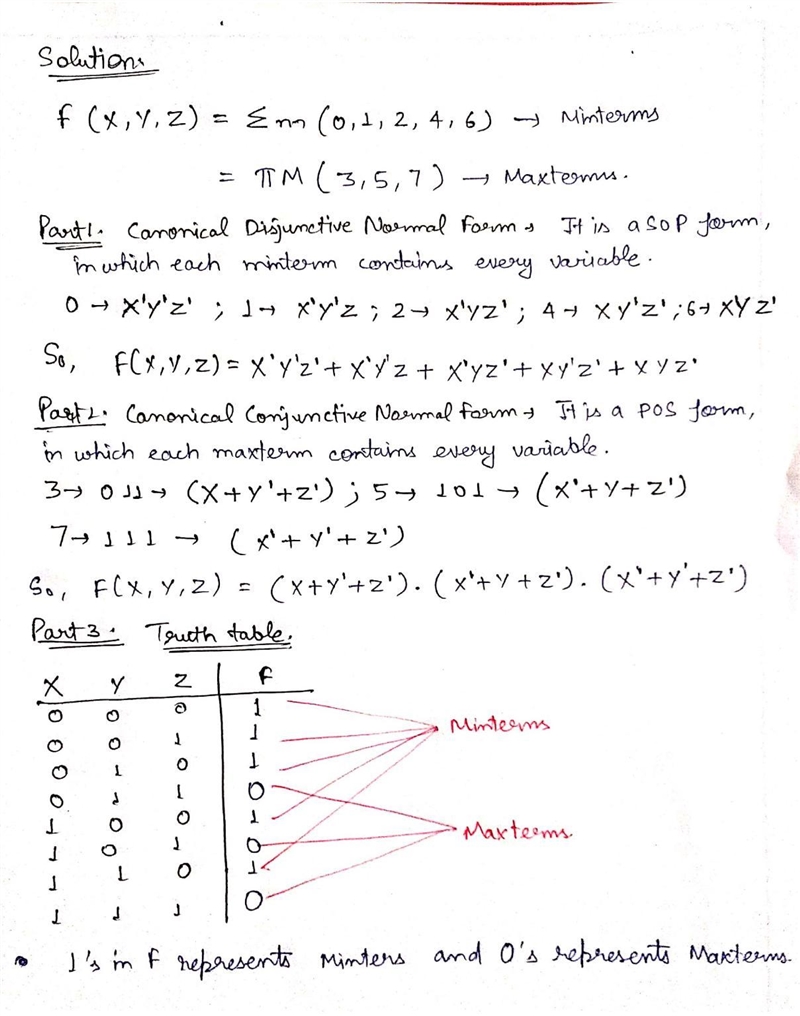 Solution:
f (X, Y, Z) = Σm (0, 1, 2, 4, 6) → Minterms
= πM ( 3, 5, 7 ) → Maxterms.
Part1. Canonical Disjunctive Normal Form → It is a SOP form,
in which each minterm contains every variable.
0 → X'Y'Z' ; 1 → X'Y'Z ; 2 → X'YZ' ; 4 → XY'Z' ; 6 → XYZ'
So, F(X,Y,Z) = X'Y'Z' + X'Y'Z + X'YZ' + XY'Z' + XYZ'
Part2. Canonical Conjunctive Normal Form → It is a POS form,
in which each maxterm contains every variable.
3 → 011 → (X+Y'+Z') ; 5 → 101 → (X'+Y+Z')
7 → 111 → (X'+Y'+Z')
So, F(X, Y, Z) = (X+Y'+Z') . (X'+Y+Z') . (X'+Y'+Z')
Part 3. Truth table.
X Y Z F
0 0 0 1
0 0 1 1 Minterms
0 1 0 1
0 1 1 0
1 0 0 1
1 0 1 0 Maxterms.
1 1 0 1
1 1 1 0
• 1's in F represents Minters and 0's represents Maxterms.